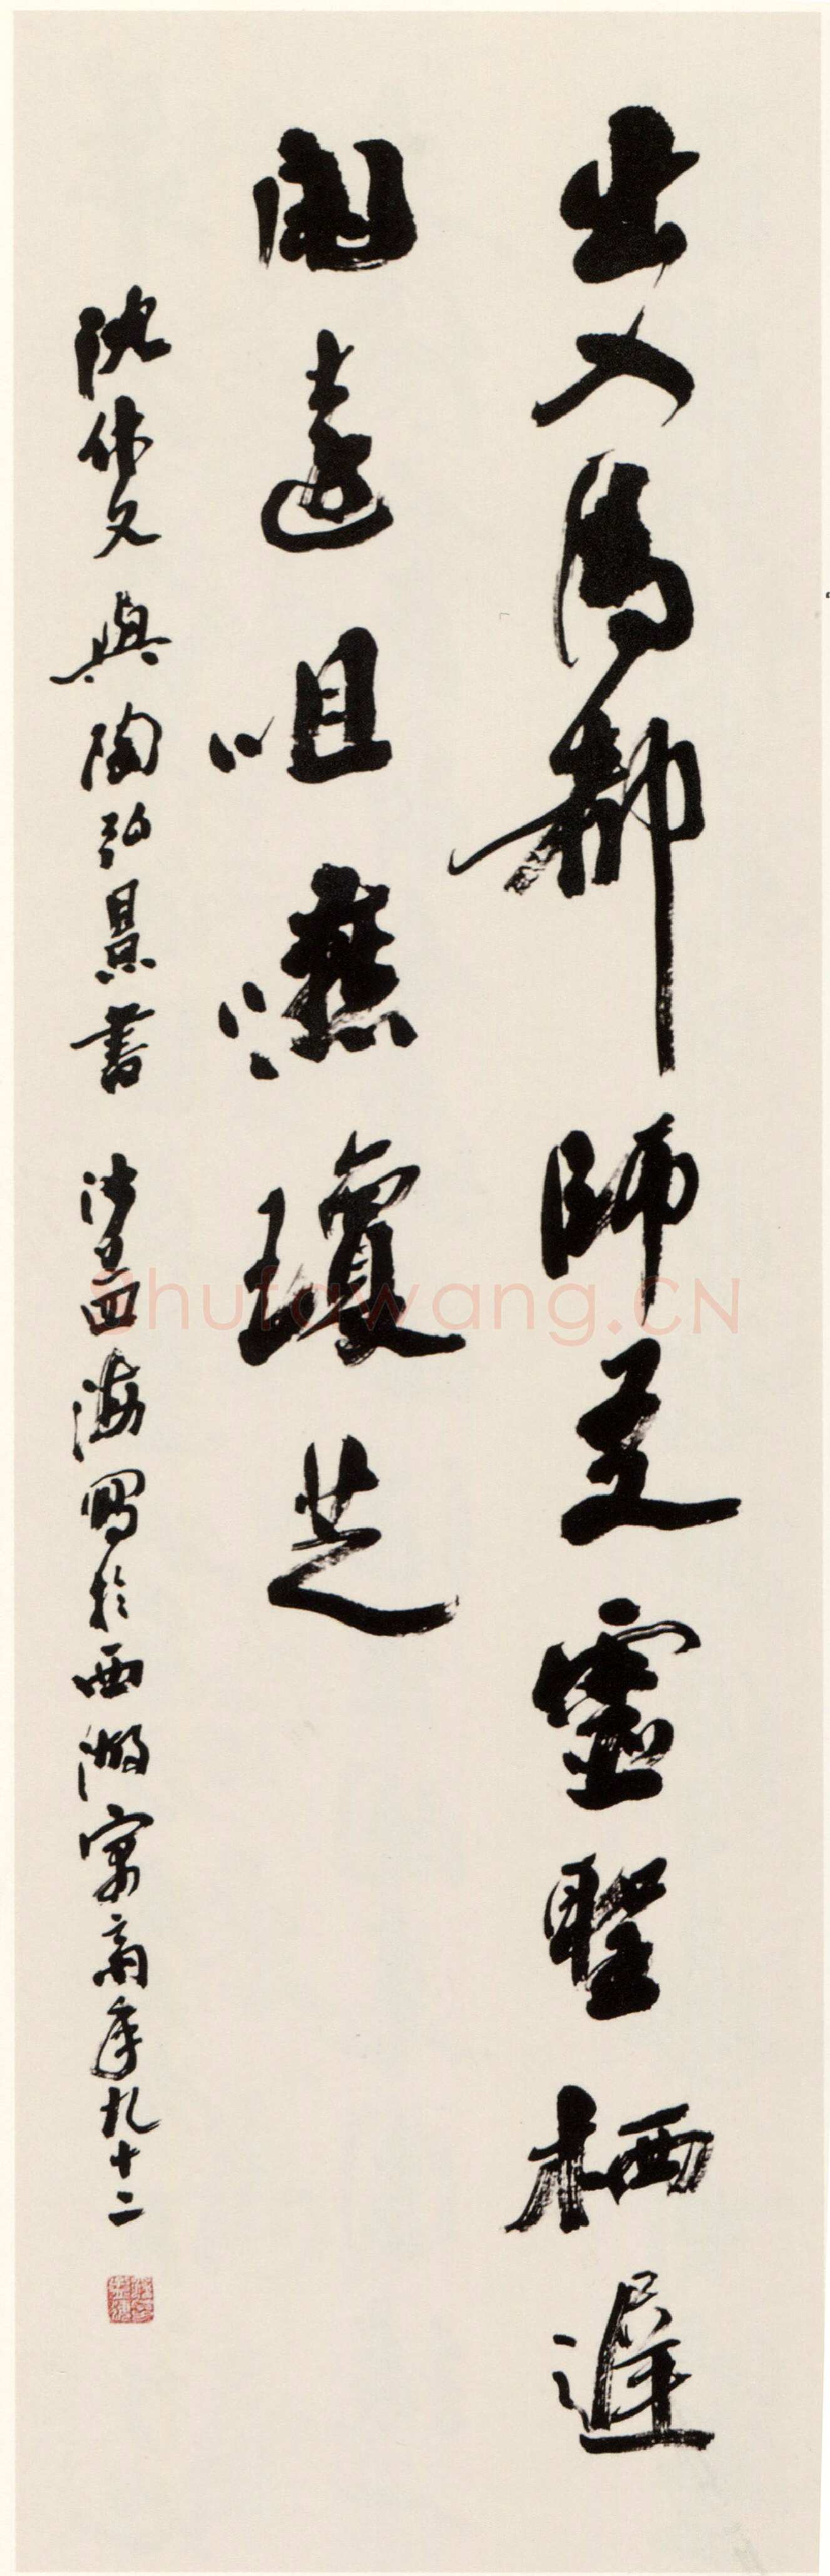 出入清都師友靈聖栖遲
閑遠咀嚥瓊芝
沈休文與陶弘景書 沙孟海寫於西湖寓齋年九十二
Shufawang.CN